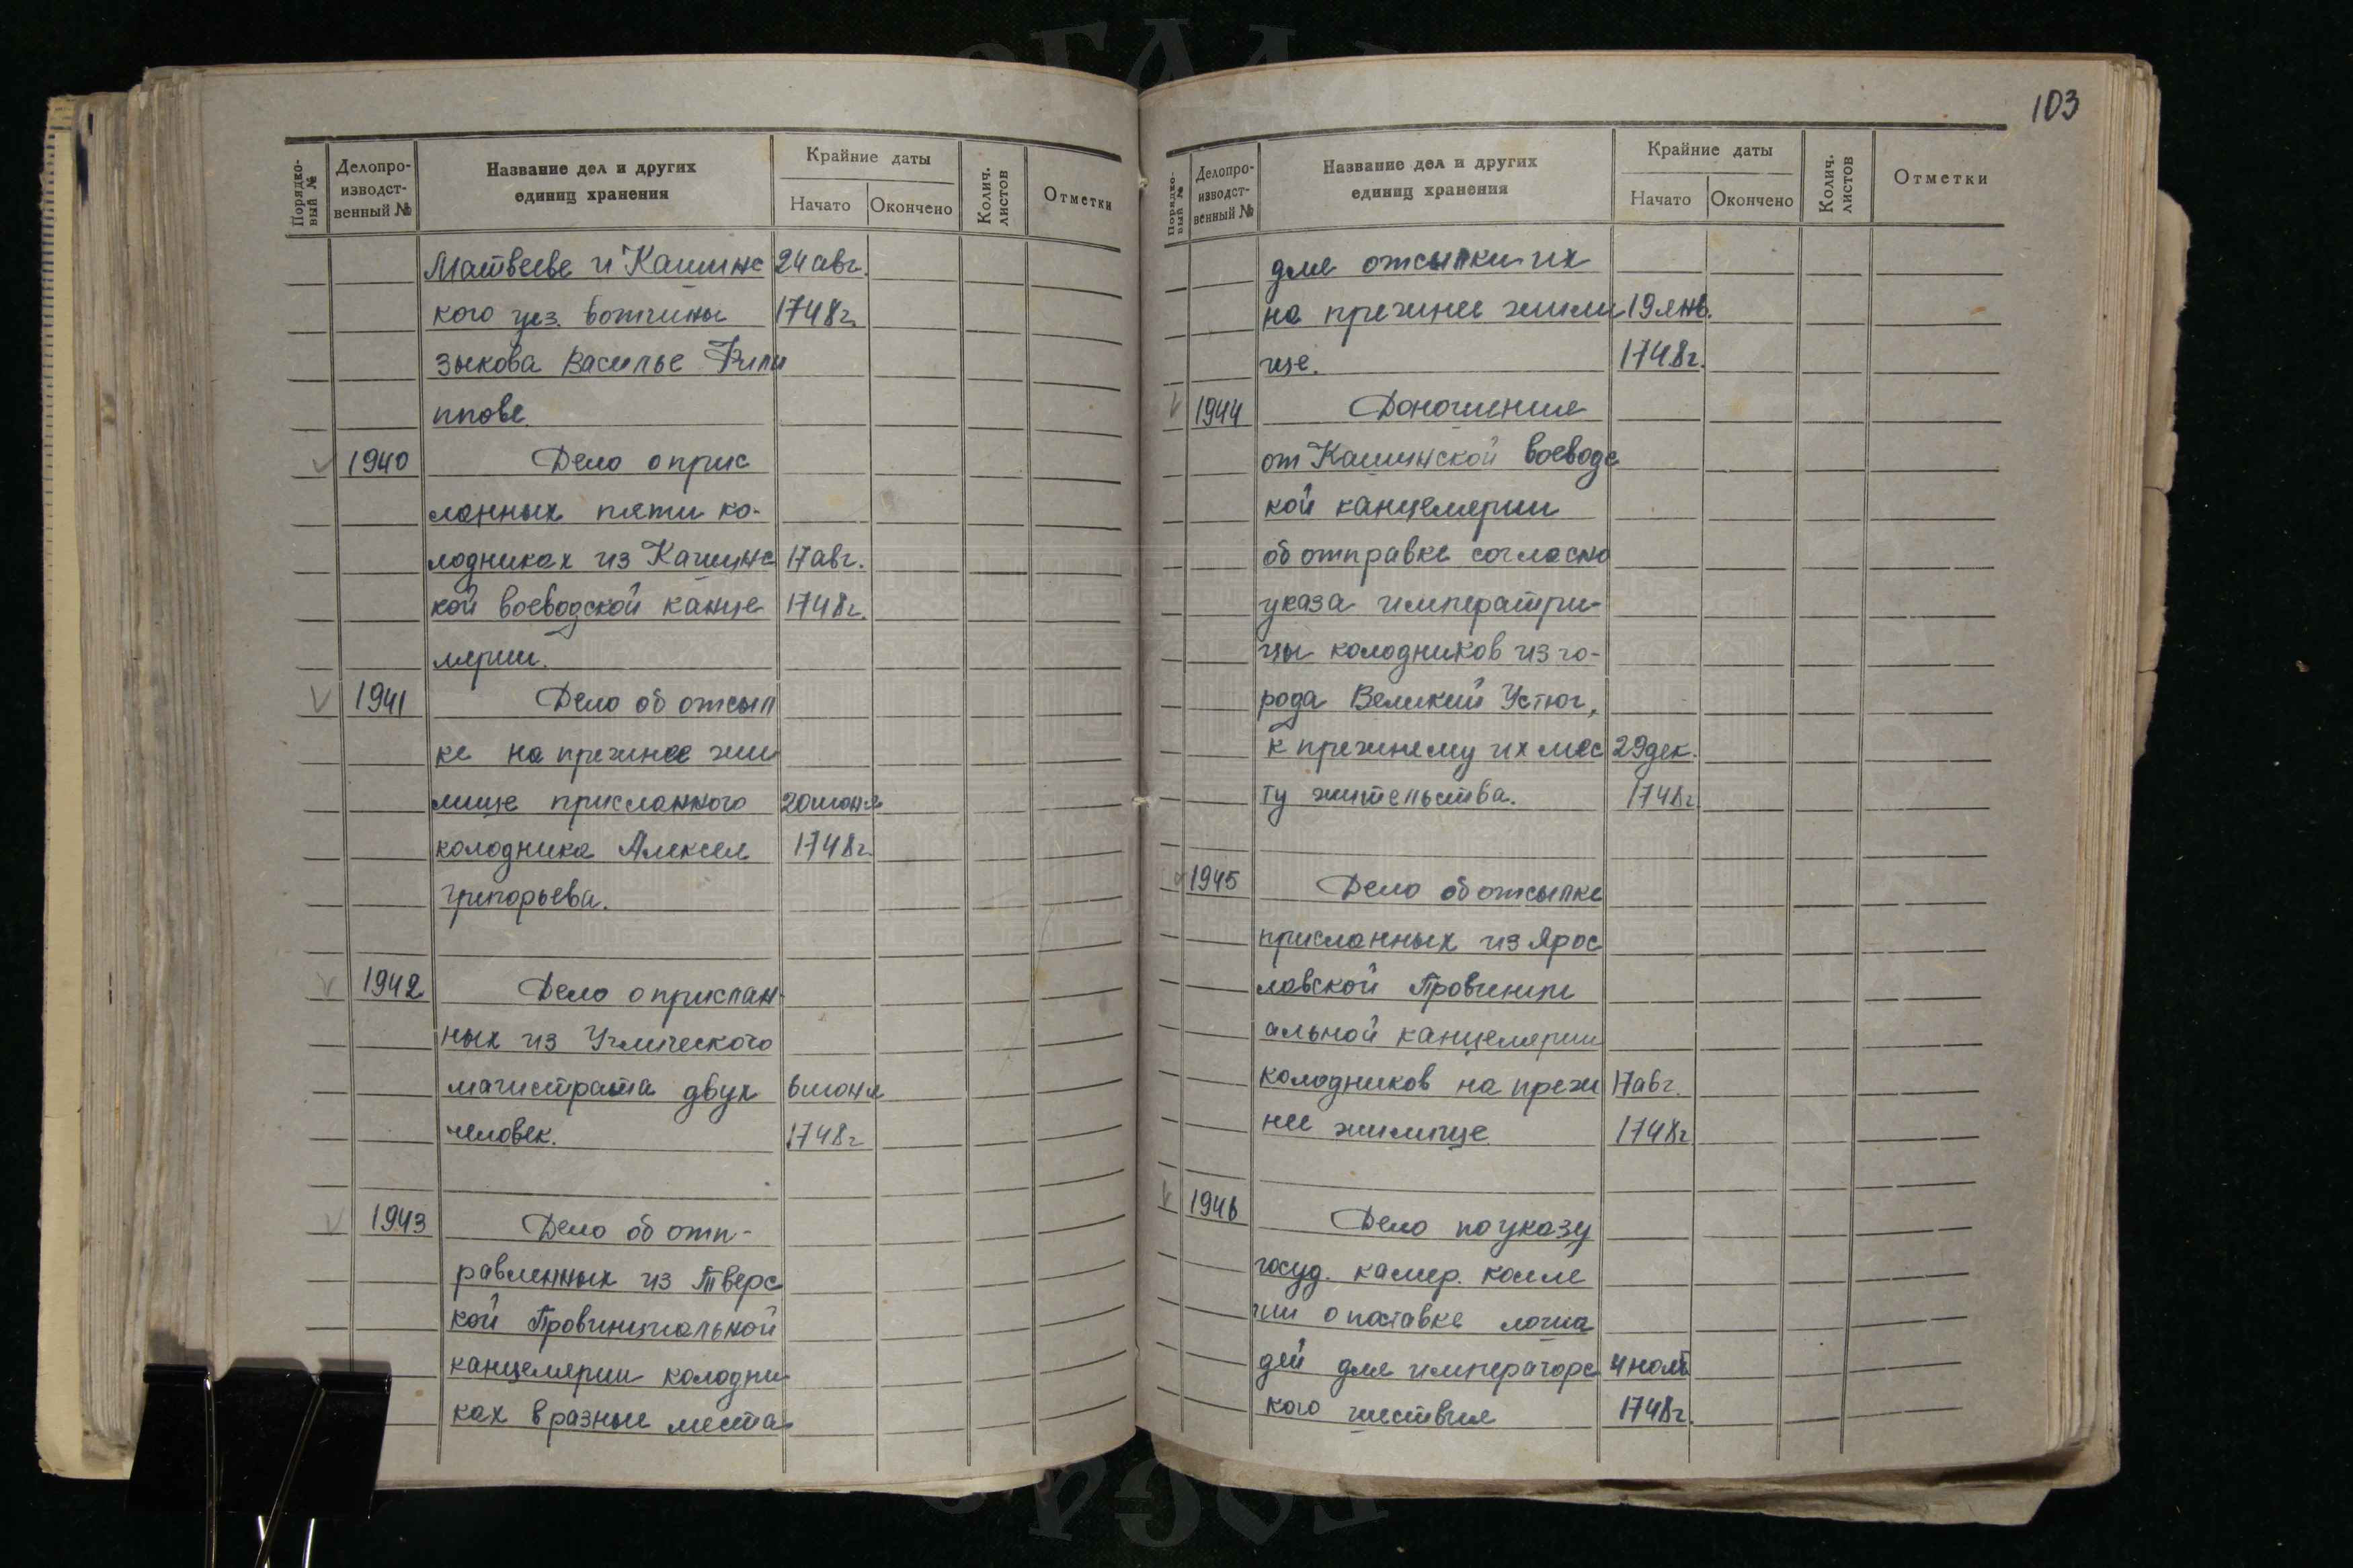 103
Порядковый №
Делопроизводственный №
Название дел и других единиц хранения
Крайние даты
Начато
Окончено
Колич. листов
Отметки
Матвееве и Кашинс 24 авг.
кого уез. вотчины 1748 г.
Зыкова Василье Фили
ппове.
1940 Дело о прис
ланных пяти ко-
лодниках из Кашинс 17 авг.
кой воеводской канце 1748 г.
лярии.
1941 Дело об отсыл
ке на прежнее жи
лище присланного 20 июня
колодника Алексея 1748 г.
Григорьева.
1942 Дело о прислан-
ных из Угличского
магистрата двух 6 июня
человек. 1748 г
1943 Дело об отп-
равленных из Тверс
кой Провинциальной
канцелярии колодни
ках в разные места
Порядковый №
Делопроизводственный №
Название дел и других единиц хранения
Крайние даты
Начато
Окончено
Колич. листов
Отметки
для отсылки их
на прежнее жили 19 янв.
ще. 1748 г.
1944 Доношение
от Кашинской воеводс
кой канцелярии
об отправке согласно
указа императри-
цы колодников из го-
рода Великий Устюг,
к прежнему их мес 29 дек.
ту жительства. 1748 г
1945 Дело об отсылке
присланных из Ярос
лавской Провинци
альной канцелярии
колодников на преж 17 авг.
нее жилище 1748 г
1946 Дело по указу
госуд. камер. колле
гии о поставке лоша
дей для императорс 4 нояб
кого шествия 1748 г.